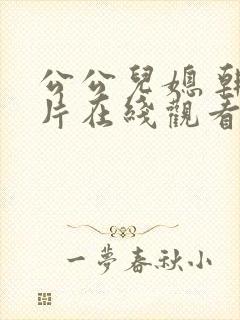 公公兒媳朝
片在綫觀看
一夢春秋小